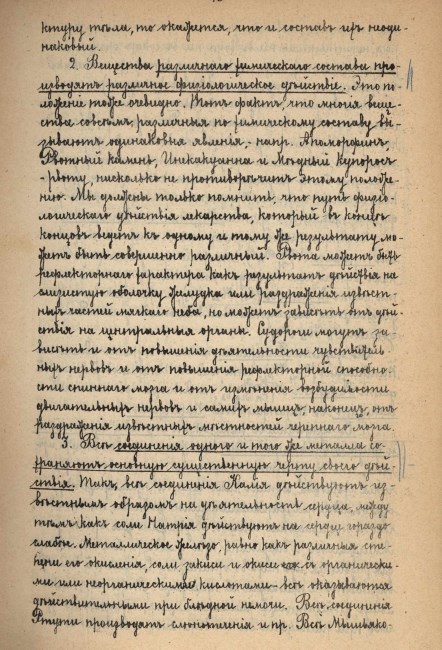 ктуру тѣла, то окажется, что и составъ ихъ неоди-
наковый.
2. Вещества различнаго химическаго состава про-
изводятъ различное физіологическое дѣйствіе. Это по-
ложеніе тоже очевидно. Тотъ фактъ, что многія веще-
ства совсѣмъ различныя по химическому составу вы-
зываютъ одинаковыя явленія,- напр. Апоморфинъ,
Рвотный камень, Ипекакуанна и Мѣдный Купоросъ
- рвоту, нисколько не противорѣчитъ этому положе-
нію. Мы должны только помнить, что путь физіо-
логическаго дѣйствія лекарства, который въ концѣ
концовъ ведетъ къ одному и тому же результату мо-
жетъ быть совершенно различный. Рвота можетъ быть
рефлекторнаго характера какъ результатъ дѣйствія на
слизистую оболочку желудка или раздраженія извѣст-
ныхъ частей мягкаго неба, но можетъ зависѣть отъ дѣй-
ствія на центральные органы. Судороги могутъ за-
висѣть и отъ повышенія дѣятельности чувствитель-
ныхъ нервовъ и отъ повышенія рефлекторной способно-
сти спиннаго мозга и отъ измѣненія возбудимости
двигательныхъ нервовъ и самихъ мышцъ, наконецъ, отъ
раздраженія извѣстныхъ мѣстностей черепнаго мозга.
3. Всѣ соединенія одного и того же металла со-
храняютъ основную существенную черту своего дѣй-
ствія. Такъ, всѣ соединенія Калія дѣйствуютъ из-
вѣстнымъ образомъ на дѣятельность сердца, между
тѣмъ какъ соли Натрія дѣйствуютъ на сердце гораздо
слабѣе. Металлическое желѣзо, равно какъ различныя сте-
пени его окисленія, соли закиси и окиси съ органически-
ми или неорганическими кислотами- всѣ оказываются
дѣйствительными при блѣдной немочи. Всѣ соединенія
Ртути производятъ слюнотеченія и пр. Всѣ Мышьяко-